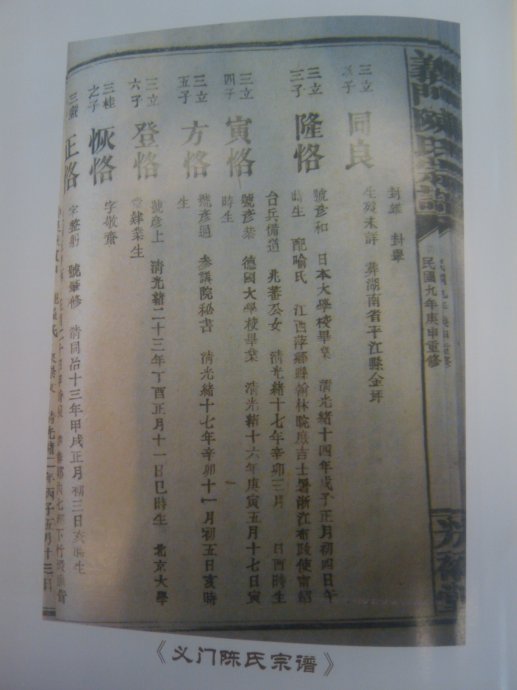 義門陳氏宗譜
民國九年庚申重修
三立
次子
同良
封雄 封舉
生歿未詳 葬湖南省平江縣金坪
三立
三子
隆恪
號彥和 日本大學校畢業 清光緒十四年戊子正月初四日午
時生 配喻氏 江西萍鄉縣翰林院庶吉士署浙江布政使甯紹
台兵備道 兆蕃公女 清光緒十七年辛卯三月 日酉時生
三立
四子
寅恪
號彥恭 德國大學校畢業 清光緒十六年庚寅五月十七日寅
時生
三立
五子
方恪
號彥通 參謀院秘書 清光緒十七年辛卯十一月初五日亥時
生
三立
六子
登恪
號彥上 清光緒二十三年丁酉正月十一日巳時生 北京大學
堂肄業生
三桂
之子
恢恪
字敬齋
三
正恪
字整躬 號畢修 清同治十三年甲戌正月初三日亥時生
清光緒二年丙子五月十三日
《义门陈氏宗谱》